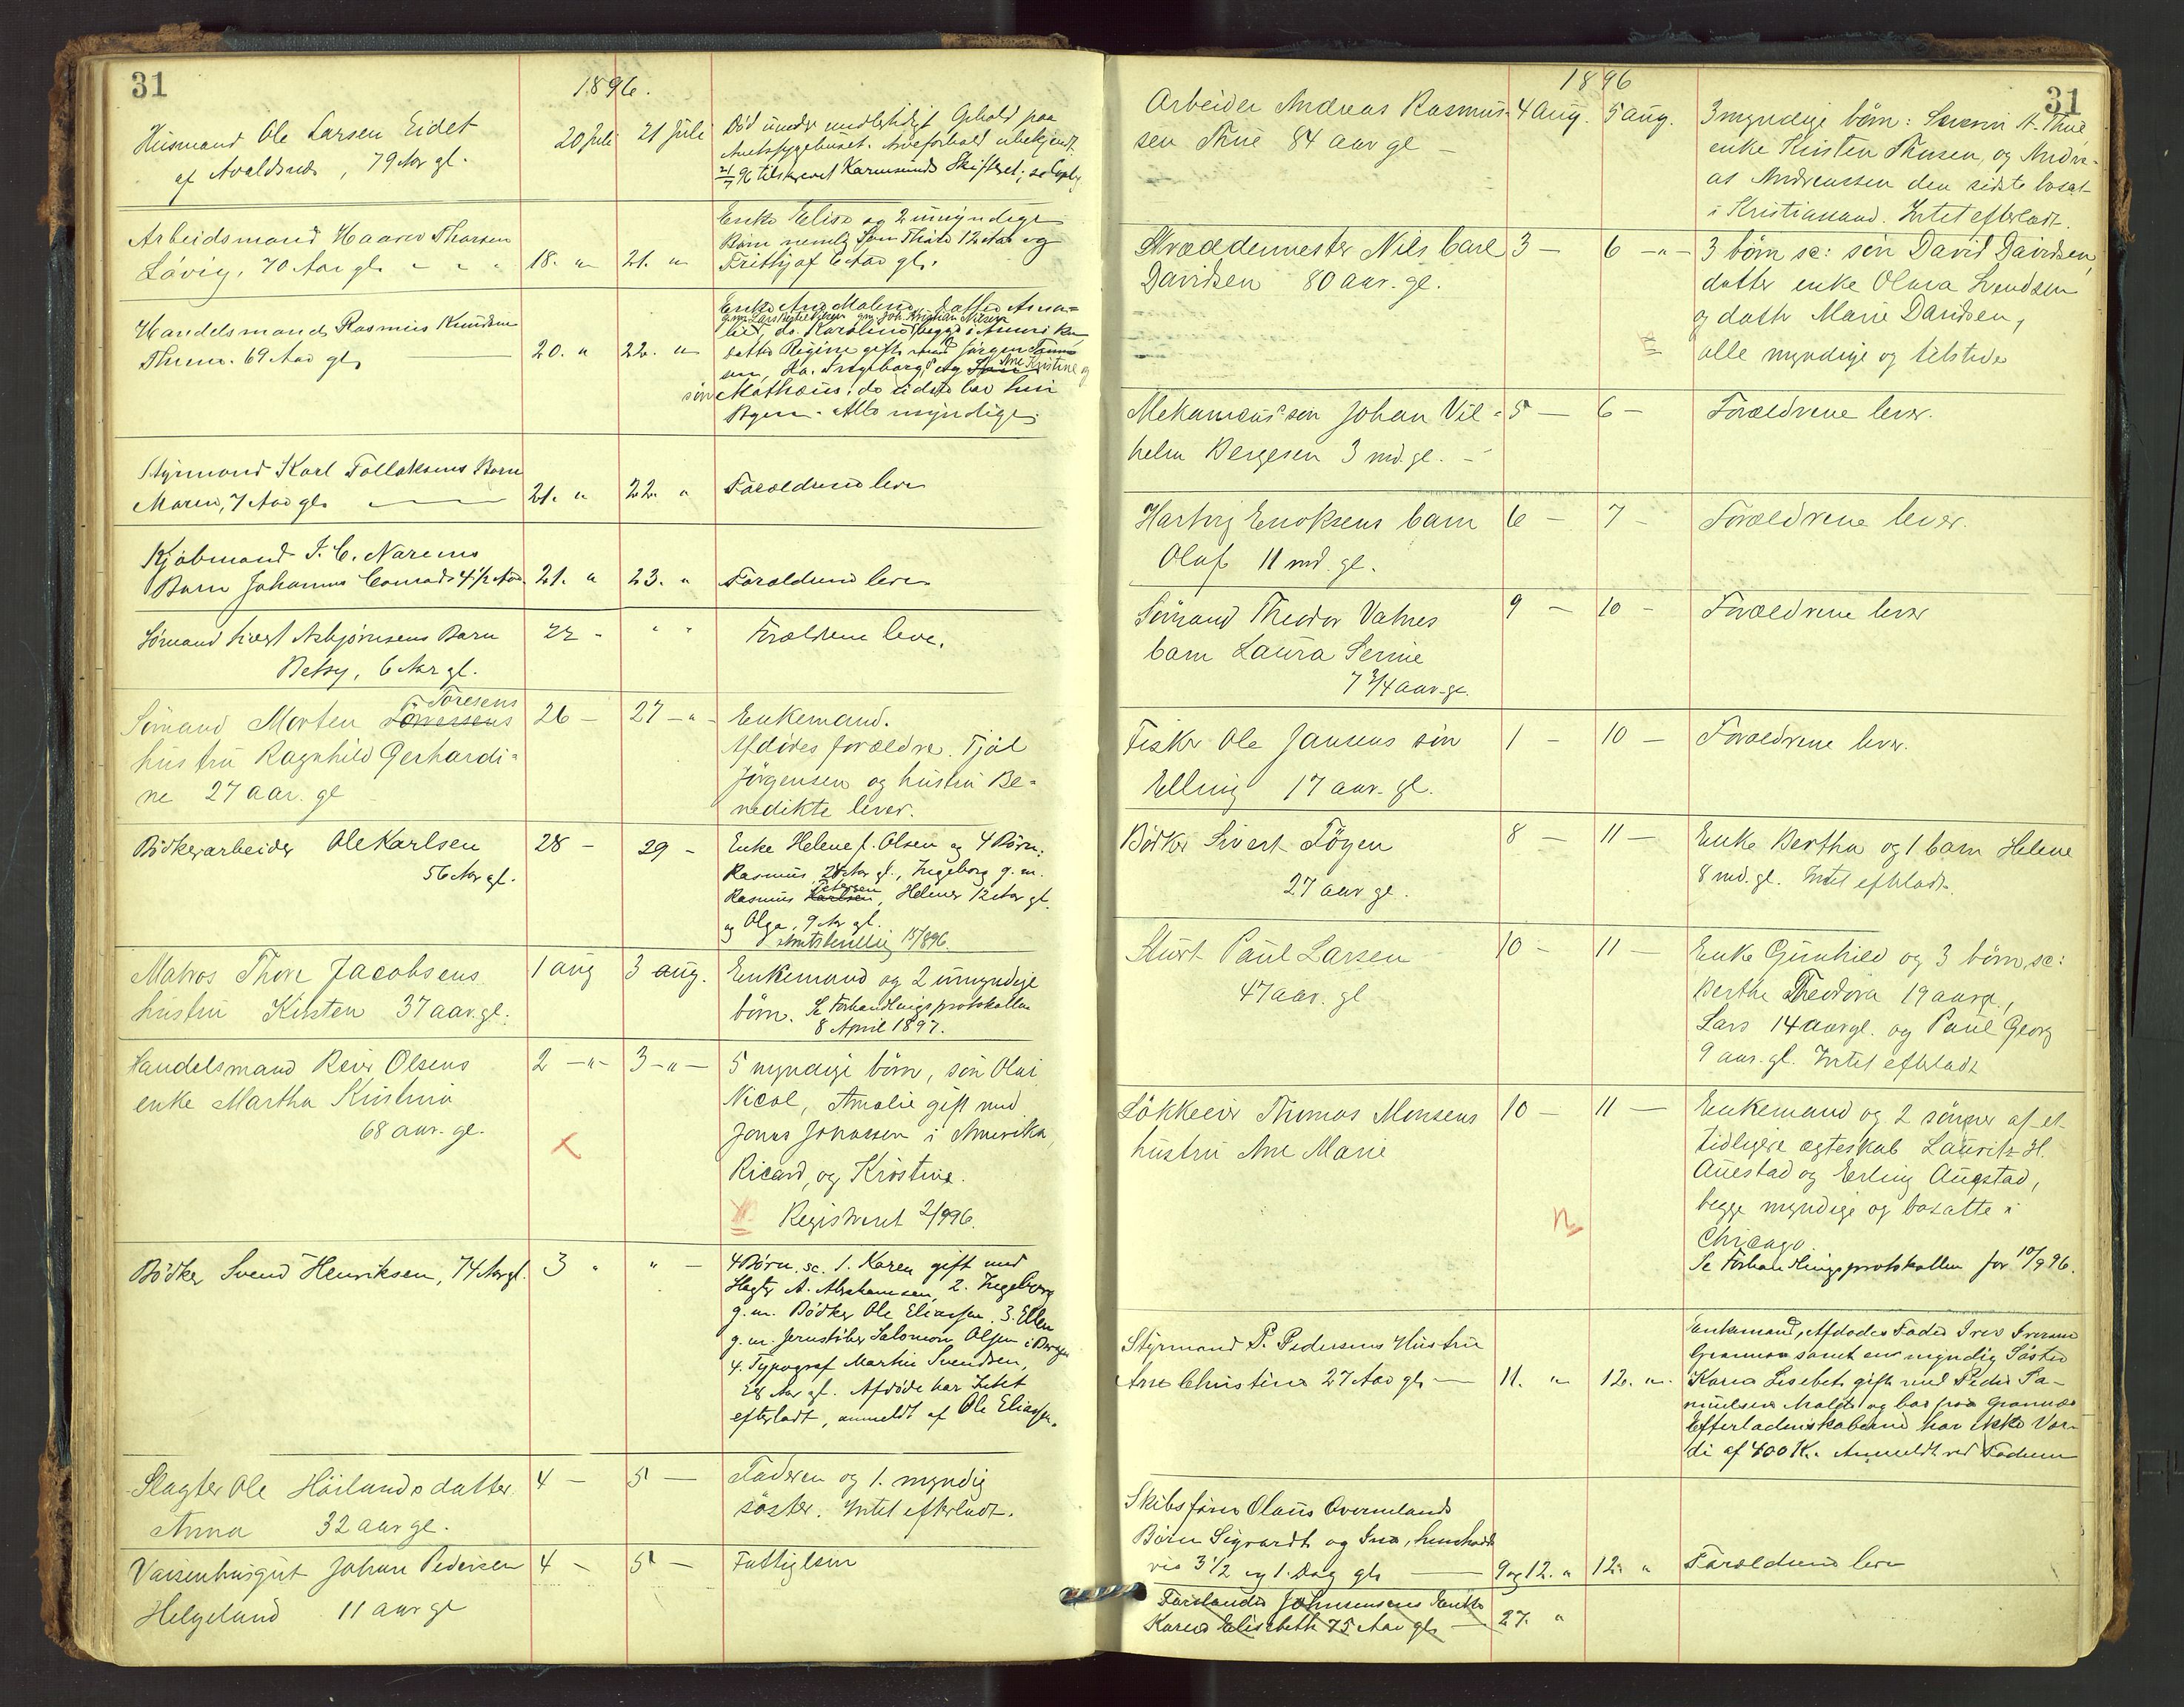 31
1896.
Husmand Ole Larsen Eidet
af Avaldsnæs, 79 Aar gl.
20 Juli
21 Juli
Død under midlertidigt Ophold paa
Amtssygehuset. Arveforhold ubekjendt.
21/7 96 tilskrevet Karmsunds Skifteret; se Copib.
Arbeidsmand Haaver Thorsen
Løvig, 70 Aar gl.
18. "
21. "
Enke Elise og 2 umyndige
Børn nemlig Søn Thore 12 Aar og
Frithjof 6 Aar gl.
Handelsmand Rasmus Knudsen
Thuen. 69 Aar gl.
20. "
22. "
Enke Ane Malene, Datter Ama-
lie, do. Karoline begge i Amerika
datter Regine gift med Jørgen
sen, do. Ingeborg, og Ane Kristine og
søn Mathæus, do sidste bor hin
Byen. Alle myndige.
Styrmand Karl Tollaksens Barn
Maren, 7 Aar gl.
21. "
22. "
Forældrene leve
Kjøbmand J. C. Narems
Barn Johannes Conrad 4 1/2 Aar.
21. "
23. "
Forældrene leve
Sømand Sivert Asbjørnsens Barn
Betsy, 6 Aar gl.
22 -
" "
Forældrene leve.
Toresens
Sømand Morten Tørressens
hustru Ragnhild Gerhardi-
ne 27 aar. gl
26 -
27 - " -
Enkemand.
Afdødes forældre. Tjøl
Jørgensen og hustru Be-
nedikte lever.
Bødkerarbeider Ole Karlsen
56 Aar gl.
28 -
29 -
Enke Helene f. Olsen og 4 Børn:
Rasmus, 28 Aar gl., Ingeborg g. m.
Rasmus Karlsen Petersen, Helmer 12 Aar gl.
og Olga, 9 Aar gl.
Matros Thore Jacobsens
hustru Kirsten 37 aar. gl.
1 aug
3 aug.
Enkemand og 2 umyndige
børn. Se Forhandlingsprotokollen
8 April 1897.
Handelsmand Reier Olsens
enke Martha Kristina
68 aar. gl.
2 - " -
3 - " -
5 myndige børn, søn Olai
Nicol, Amalie gift med
Jonas Jonassen i Amerika,
Ricard, og Kristine.
Registreret 2/9 96.
Bødker Svend Henriksen, 74 Aar gl.
3 "
" -
4 Børn. sc. 1. Karen gift med
Slagter A. Abrahamsen, 2. Ingeborg
g. m. Bødker Ole Eliassen. 3. Ellen
g. m. Jernstøber Salomon Olsen i Bergen
4. Typograf Martin Svendsen,
28 Aar gl. Afdøde har Intet
efterladt, anmeldt af Ole Eliassen.
Slagter Ole Høilands datter
Anna 32 aar gl.
4 -
5 -
Faderen og 1. myndig
søster. Intet efterladt.
Vaisenhusgut Johan Pedersen
Helgeland 11 aar gl
4 -
5 -
Fattiglem
1896
31
Arbeider Andreas Rasmus-
sen Thue 84 aar gl -
4 aug.
5 aug.
3 myndige børn: Severin A. Thue
enke Kirsten Thusen, og Andre-
as Andreassen den sidste bosat
i Kristiansand. Intet efterladt.
Skræddermester Nils Carl
Davidsen 80 aar. gl.
3 -
6 - " -
3 børn sc: søn David Davidsen,
datter enke Olava Svendsen
og datter Marie Davidsen,
alle myndige og tilstede
Mekanicus' søn Johan Vil-
helm Bergesen 3 md. gl. -
5 -
6 -
Forældrene lever.
Hartvig Enoksens barn
Olaf 11 md. gl.
6 -
7 -
Forældrene lever.
Sømand Theodor Vatnes
barn Laura Serine
7 3/4 aar. gl.
9 -
10 -
Forældrene lever
Fisker Ole Jansens søn
Elling 17 aar. gl.
1 -
10 -
Forældrene lever.
Bødker Sivert Tøgen
27 aar gl.
8 -
11 -
Enke Bertha og 1 barn Helene
8 md. gl. Intet efterladt.
Stuert Paul Larsen
47 aar. gl
10 -
11 -
Enke Gunhild og 3 børn, sc:
Berthe Theodora 19 aar gl.,
Lars 14 aar gl. og Paul Georg
9 aar. gl. Intet efterladt
Løkkeeier Thomas Monsens
hustru Ane Marie
10 -
11 -
Enkemand og 2 sønner af et
tidligere ægteskab Lauritz H.
Auestad og Erling Auestad,
begge myndige og bosatte i
Chicago
Se Forhandlingsprotokollen for 10/9 96.
Styrmand P. Pedersens Hustru
Ane Christine 27 Aar gl. -
11. "
12. "
Enkemand, Afdødes Fader Iver Iversen
Grannes samt en myndig Søster
Karen Lisebet gift med Peder Sa-
muelsen og bor paa Grannes
Efterladenskaberne har ikke Vær-
di af 400 K. Anmeldt ved Faderen
Skibsfører Olaus Overnelands
Børn Sigvardt og Ina, henholds
vis 3 1/2 og 1 Dag gl.
9 og 12. "
12. "
Forældrene leve
Johnsensens Enke
Karen Elisabeth 75 Aar gl. -
27. "